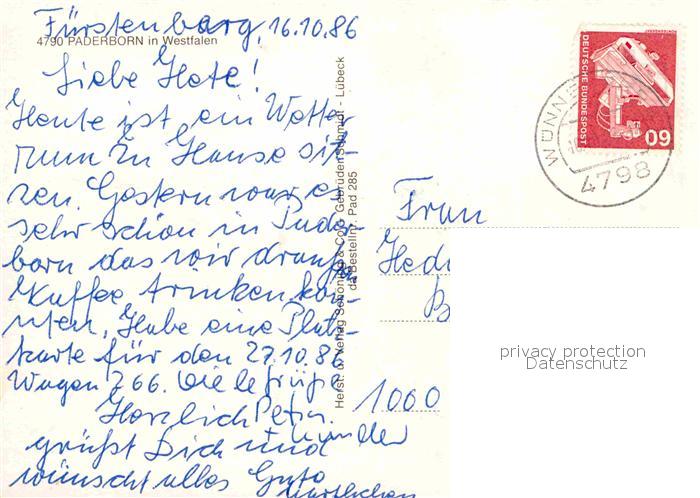 Fürstenberg, 16.10.86
4790 PADERBORN in Westfalen
Liebe Hete!
Heute ist ein Wetter
zum zu Hause sit-
zen. Gestern war es
sehr schön in Pader
born das wir draußen
Kaffee trinken kon-
nten, Habe eine Platz
karte für den 27.10.86
Wagen 266. Viele Grüße
Herzlich Petra.
grüßt Dich und
wünscht alles Gute
Herst. u. Verlag Schöning & Co + Gebrüder Schmidt - Lübeck
Bestellnr. Pad 285
DEUTSCHE BUNDESPOST
60
WÜNNE
4798
Frau
Hed
B
1000
privacy protection
Datenschutz